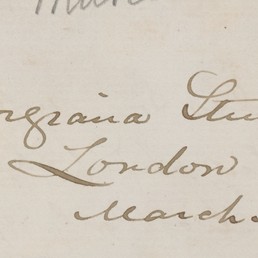 rgiana Stu
London
March.